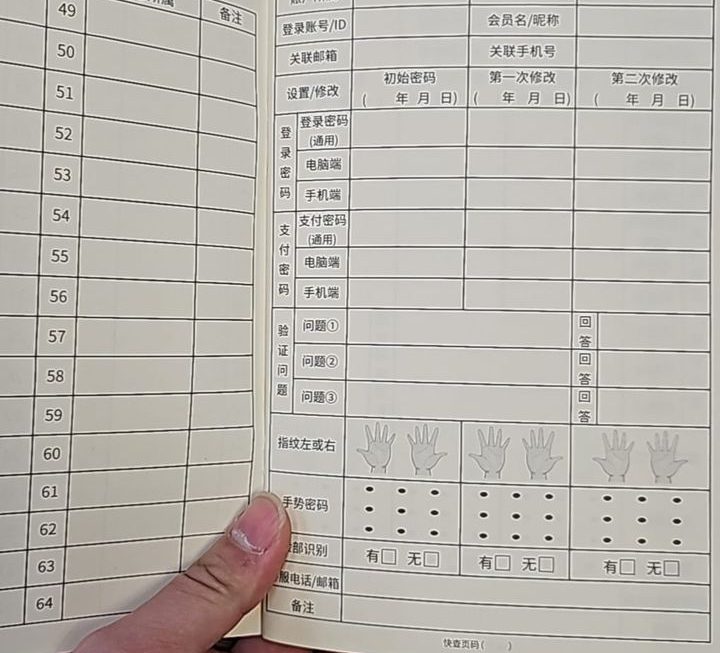 备注
49
50
51
52
53
54
55
56
57
58
59
60
61
62
63
64
登录账号/ID 会员名/昵称
关联邮箱 关联手机号
设置/修改 初始密码 ( 年 月 日) 第一次修改 ( 年 月 日) 第二次修改 ( 年 月 日)
登录密码
登录密码(通用)
电脑端
手机端
支付密码
支付密码(通用)
电脑端
手机端
验证问题
问题① 回答
问题② 回答
问题③ 回答
指纹左或右
手势密码
部识别 有□ 无□ 有□ 无□ 有□ 无□
服电话/邮箱
备注
快查页码( )